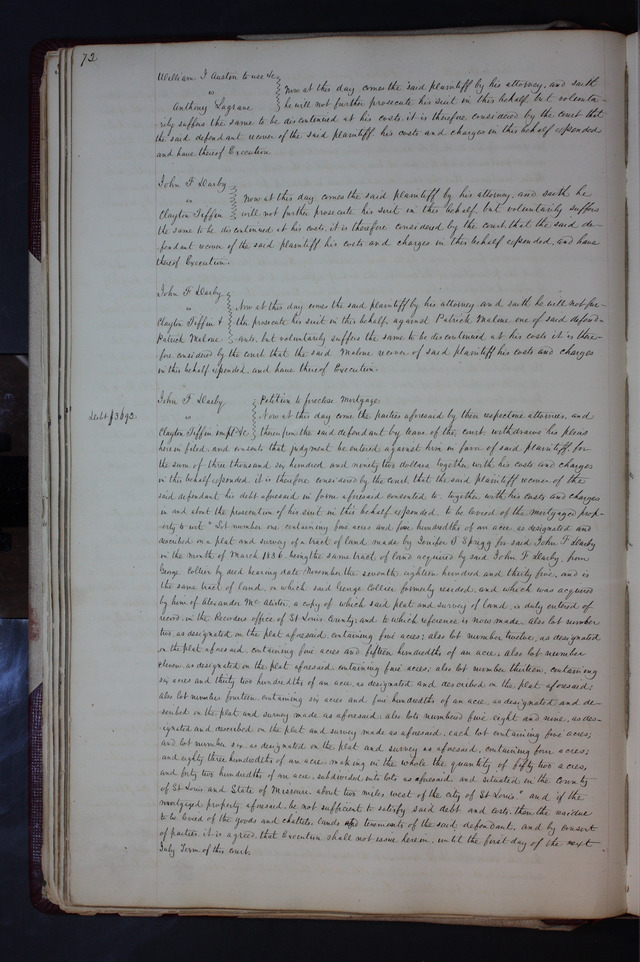 72
William J Austin to use &c
vs
Anthony Lagrave
Now at this day comes the said plaintiff by his attorney, and saith
he will not further prosecute his suit in this behalf but volunta-
rily suffers the same to be discontinued at his costs. it is therefore considered by the court that
the said defendant recover of the said plaintiff his costs and charges in this behalf expended
and have thereof Execution
John F Darby
vs
Clayton Tiffin
Now at this day comes the said plaintiff by his attorney, and saith he
will not further prosecute his suit in this behalf, but voluntarily suffers
the same to be discontinued at his costs, it is therefore considered by the court that the said de-
fendant recover of the said plaintiff his costs and charges in this behalf expended, and have
thereof Execution.
John F Darby
vs
Clayton Tiffin &
Patrick Malone
Now at this day comes the said plaintiff by his attorney and saith he will not fur-
ther prosecute his suit in this behalf, against Patrick Malone one of said defend-
ants, but voluntarily suffers the same to be discontinued at his costs it is there-
fore considered by the court that the said Malone recover of said plaintiff his costs and charges
in this behalf expended, and have thereof Execution.
John F Darby
vs
Clayton Tiffin impl &c
Debt $3692
Petition to foreclose Mortgage
Now at this day come the parties aforesaid by their respective attornies, and
thereupon the said defendant by leave of the court withdraws his pleas
herein filed, and consents that judgment be entered against him in favor of said plaintiff, for
the sum of three thousand six hundred and ninety two dollars together with his costs and charges
in this behalf expended. it is therefore considered by the court that the said plaintiff recover of the
said defendant his debt aforesaid in form aforesaid consented to, together with his costs and charges
in and about the prosecution of his suit in this behalf expended, to be levied of the mortgaged prop-
erty to wit "Lot number one containing five acres and five hundredths of an acre, as designated and
described on a plat and survey of a tract of land made by S Sprigg for said John F Darby
in the month of March 1836, being the same tract of land acquired by said John F Darby, from
George Collier by deed bearing date November the seventh eighteen hundred and thirty five, and is
the same tract of land, on which said George Collier formerly resided, and which was acquired
by him of Alexander McAlister, a copy of which said plat and survey of land is duly entered of
record in the Recorders office of St Louis County, and to which reference is now made. also lot number
two, as designated on the plat aforesaid containing five acres; also lot number twelve, as designated
on the plat aforesaid, containing five acres and fifteen hundredths of an acre, also lot number
eleven, as designated on the plat aforesaid containing five acres; also lot number thirteen, containing
six acres and thirty two hundredths of an acre, as designated and described on the plat aforesaid;
also lot number fourteen, containing six acres and five hundredths of an acre, as designated and de-
scribed on the plat and survey made as aforesaid, also lots numbered five eight and nine, as des-
ignated and described on the plat and survey made as aforesaid, each lot containing five acres;
and lot number six, as designated on the plat and survey as aforesaid, containing four acres;
and eighty three hundredths of an acre, making in the whole the quantity of fifty two acres,
and forty two hundredths of an acre, subdivided into lots as aforesaid and situated in the County
of St Louis and State of Missouri about two miles west of the city of St Louis" and if the
mortgaged property aforesaid be not sufficient to satisfy said debt and costs, then the residue
to be levied of the goods and chattels, lands and tenements of the said defendant, and by consent
of parties, it is agreed that Execution shall not issue herein, until the first day of the next
July Term of this court.